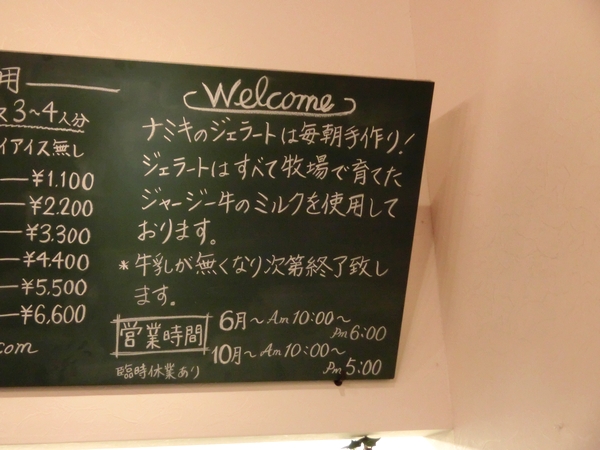 用
ス3〜4人分
イアイス無し
¥1.100
¥2.200
¥3.300
¥4.400
¥5.500
¥6,600
com
Welcome
ナミキのジェラートは毎朝手作り!
ジェラートはすべて牧場で育てた
ジャージー牛のミルクを使用して
おります。
*牛乳が無くなり次第終了致し
ます。
営業時間
6月〜Am10:00〜
Pm6:00
10月〜Am10:00〜
Pm5:00
臨時休業あり